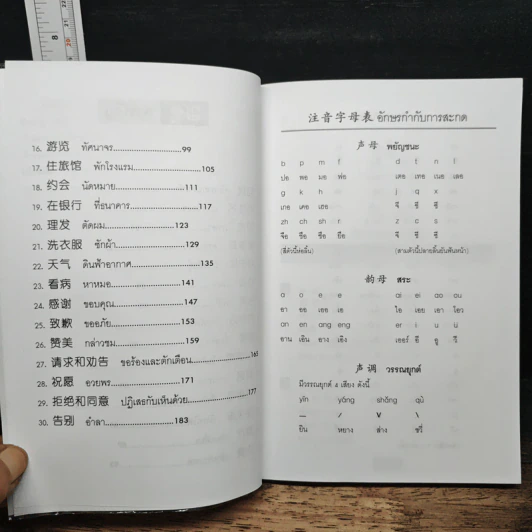 16. 游览 ทัศนาจร..............................99
17. 住旅馆 พักโรงแรม..............................105
18. 约会 นัดหมาย..............................111
19. 在银行 ที่ธนาคาร..............................117
20. 理发 ตัดผม..............................123
21. 洗衣服 ซักผ้า..............................129
22. 天气 ดินฟ้าอากาศ..............................135
23. 看病 หาหมอ..............................141
24. 感谢 ขอบคุณ..............................147
25. 致歉 ขออภัย..............................153
26. 赞美 กล่าวชม..............................159
27. 请求和劝告 ขอร้องและตักเตือน..............................165
28. 祝愿 อวยพร..............................171
29. 拒绝和同意 ปฏิเสธกับเห็นด้วย..............................177
30. 告别 อำลา..............................183
注音字母表 อักษรกำกับการสะกด
声母 พยัญชนะ
b p m f d t n l
ปอ พอ มอ ฟอ เตอ เทอ เนอ เลอ
g k h j q x
เกอ เคอ เฮอ จี ชี ซี
zh ch sh r z c s
จือ ชือ ซือ ยือ จี ชี ซี
(สี่ตัวนี้ห่อลิ้น) (สามตัวนี้ปลายลิ้นยันฟันหน้า)
韵母 สระ
a o e e ai ei ao ou
อา ออ เออ เอ ไอ เอย เอา โอว
an en ang eng er i u ü
อาน เอิน อาง เอิง เออร์ อี อู วี
声调 วรรณยุกต์
มีวรรณยุกต์ 4 เสียง ดังนี้
yīn yáng shǎng qù
— / V \
ยิน หยาง ส่าง ชวี่
8
20
21